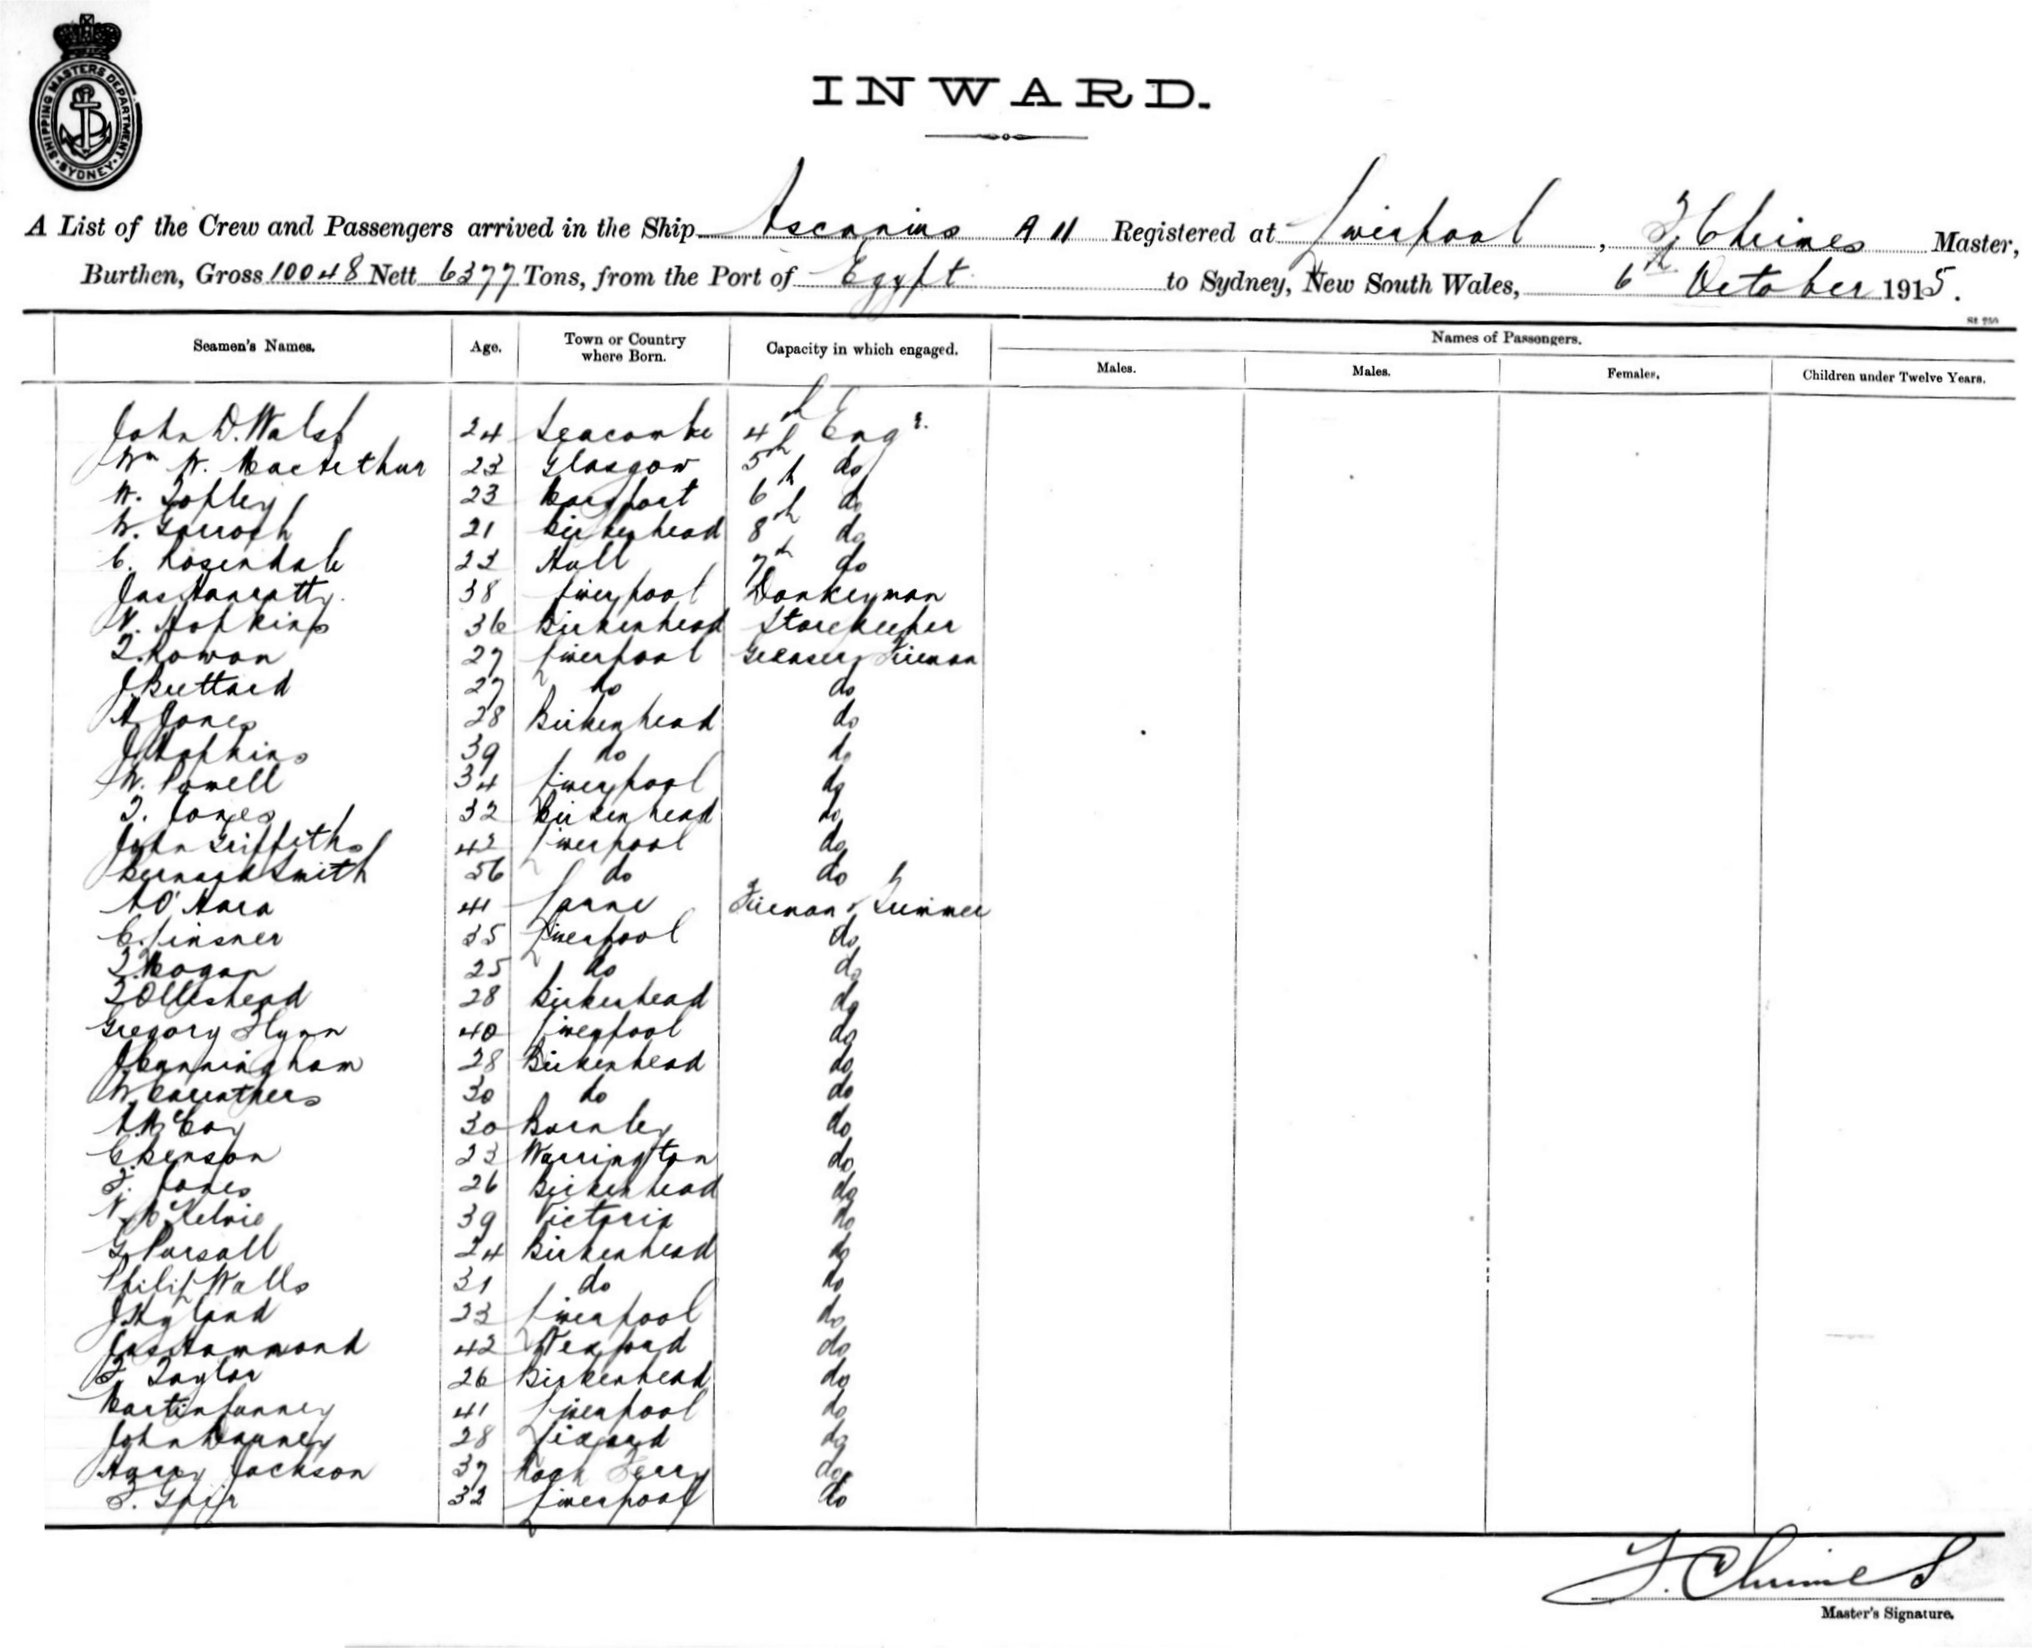 SHIPPING MASTERS DEPARTMENT · SYDNEY ·
INWARD.
A List of the Crew and Passengers arrived in the Ship Ascanius A 11 Registered at Liverpool, F Chrimes Master,
Burthen, Gross 10048 Nett 6377 Tons, from the Port of Egypt to Sydney, New South Wales, 6th October 1915.
Seamen's Names. Age. Town or Country where Born. Capacity in which engaged. Names of Passengers.
Males. Males. Females. Children under Twelve Years.
John D. Walsh 24 Seacombe 4th Engr.
Wm W. MacArthur 23 Glasgow 5th do
W. Topley 23 Maryport 6th do
W. 21 Birkenhead 8th do
C. Rosendale 23 Hull 7th do
Jas Hanratty 38 Liverpool Donkeyman
W. Hopkins 36 Birkenhead Storekeeper
T. Rowan 27 Liverpool Greaser Fireman
J 27 do do
A Jones 28 Birkenhead do
J Hopkins 39 do do
W. Powell 34 Liverpool do
T. Jones 32 Birkenhead do
John Griffiths 42 Liverpool do
Bernard Smith 56 do do
A O'Hara 41 Larne Fireman & Trimmer
C. Linsner 35 Liverpool do
T. Hogan 25 do do
T Olleshead 28 Birkenhead do
Gregory Flynn 40 Liverpool do
J Cunningham 28 Birkenhead do
W Caruthers 30 do do
A McCoy 30 Burnley do
C Benson 23 Warrington do
F. Jones 26 Birkenhead do
N McKelvie 39 Victoria do
G Pursall 24 Birkenhead do
Philip Walls 31 do do
J Hyland 23 Liverpool do
Jas Hammond 42 Wexford do
F Taylor 26 Birkenhead do
Martin Lunney 41 Liverpool do
John 28 Liscard do
Harry Jackson 37 Rock Ferry do
32 Liverpool do
F. Chrimes
Master's Signature.